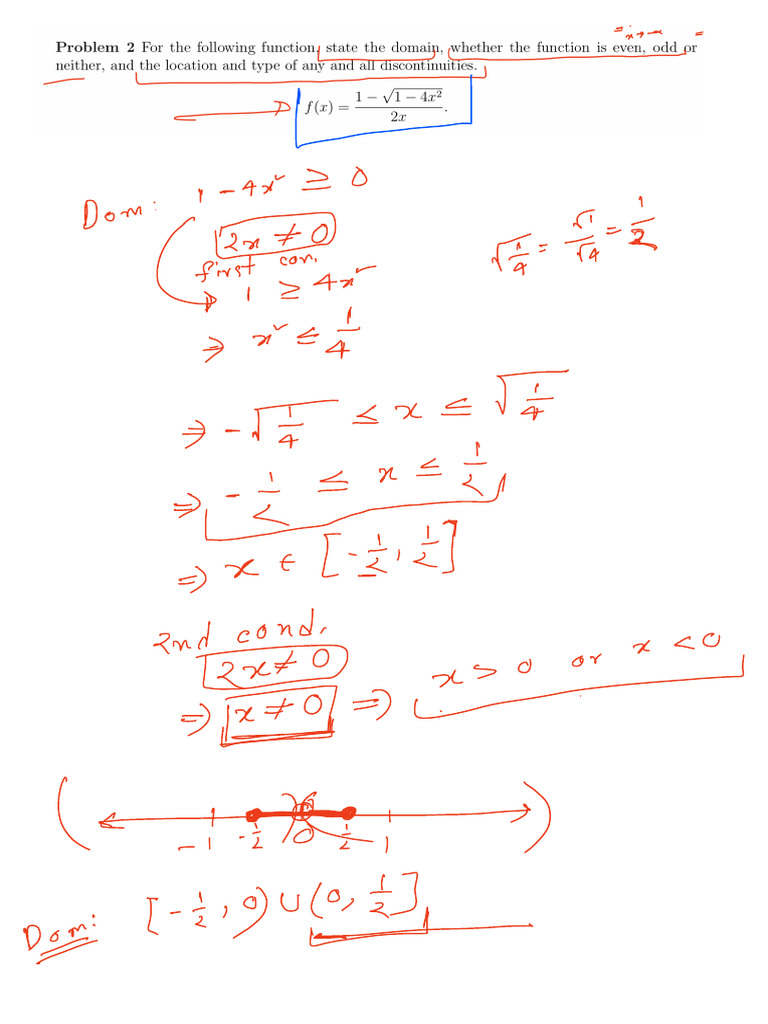 = x → -∞ =
Problem 2 For the following function, state the domain, whether the function is even, odd or
neither, and the location and type of any and all discontinuities.
f(x) = (1 − √(1 − 4x²)) / 2x.
Dom: 1 - 4x² ≥ 0
2x ≠ 0
√(1/4) = √1/√4 = 1/2
first con.
1 ≥ 4x²
⇒ x² ≤ 1/4
⇒ -√(1/4) ≤ x ≤ √(1/4)
⇒ -1/2 ≤ x ≤ 1/2
⇒ x ∈ [-1/2, 1/2]
2nd cond.
2x ≠ 0
⇒ x ≠ 0 ⇒ x > 0 or x < 0
-1 -1/2 0 1/2 1
Dom: [-1/2, 0) ∪ (0, 1/2]